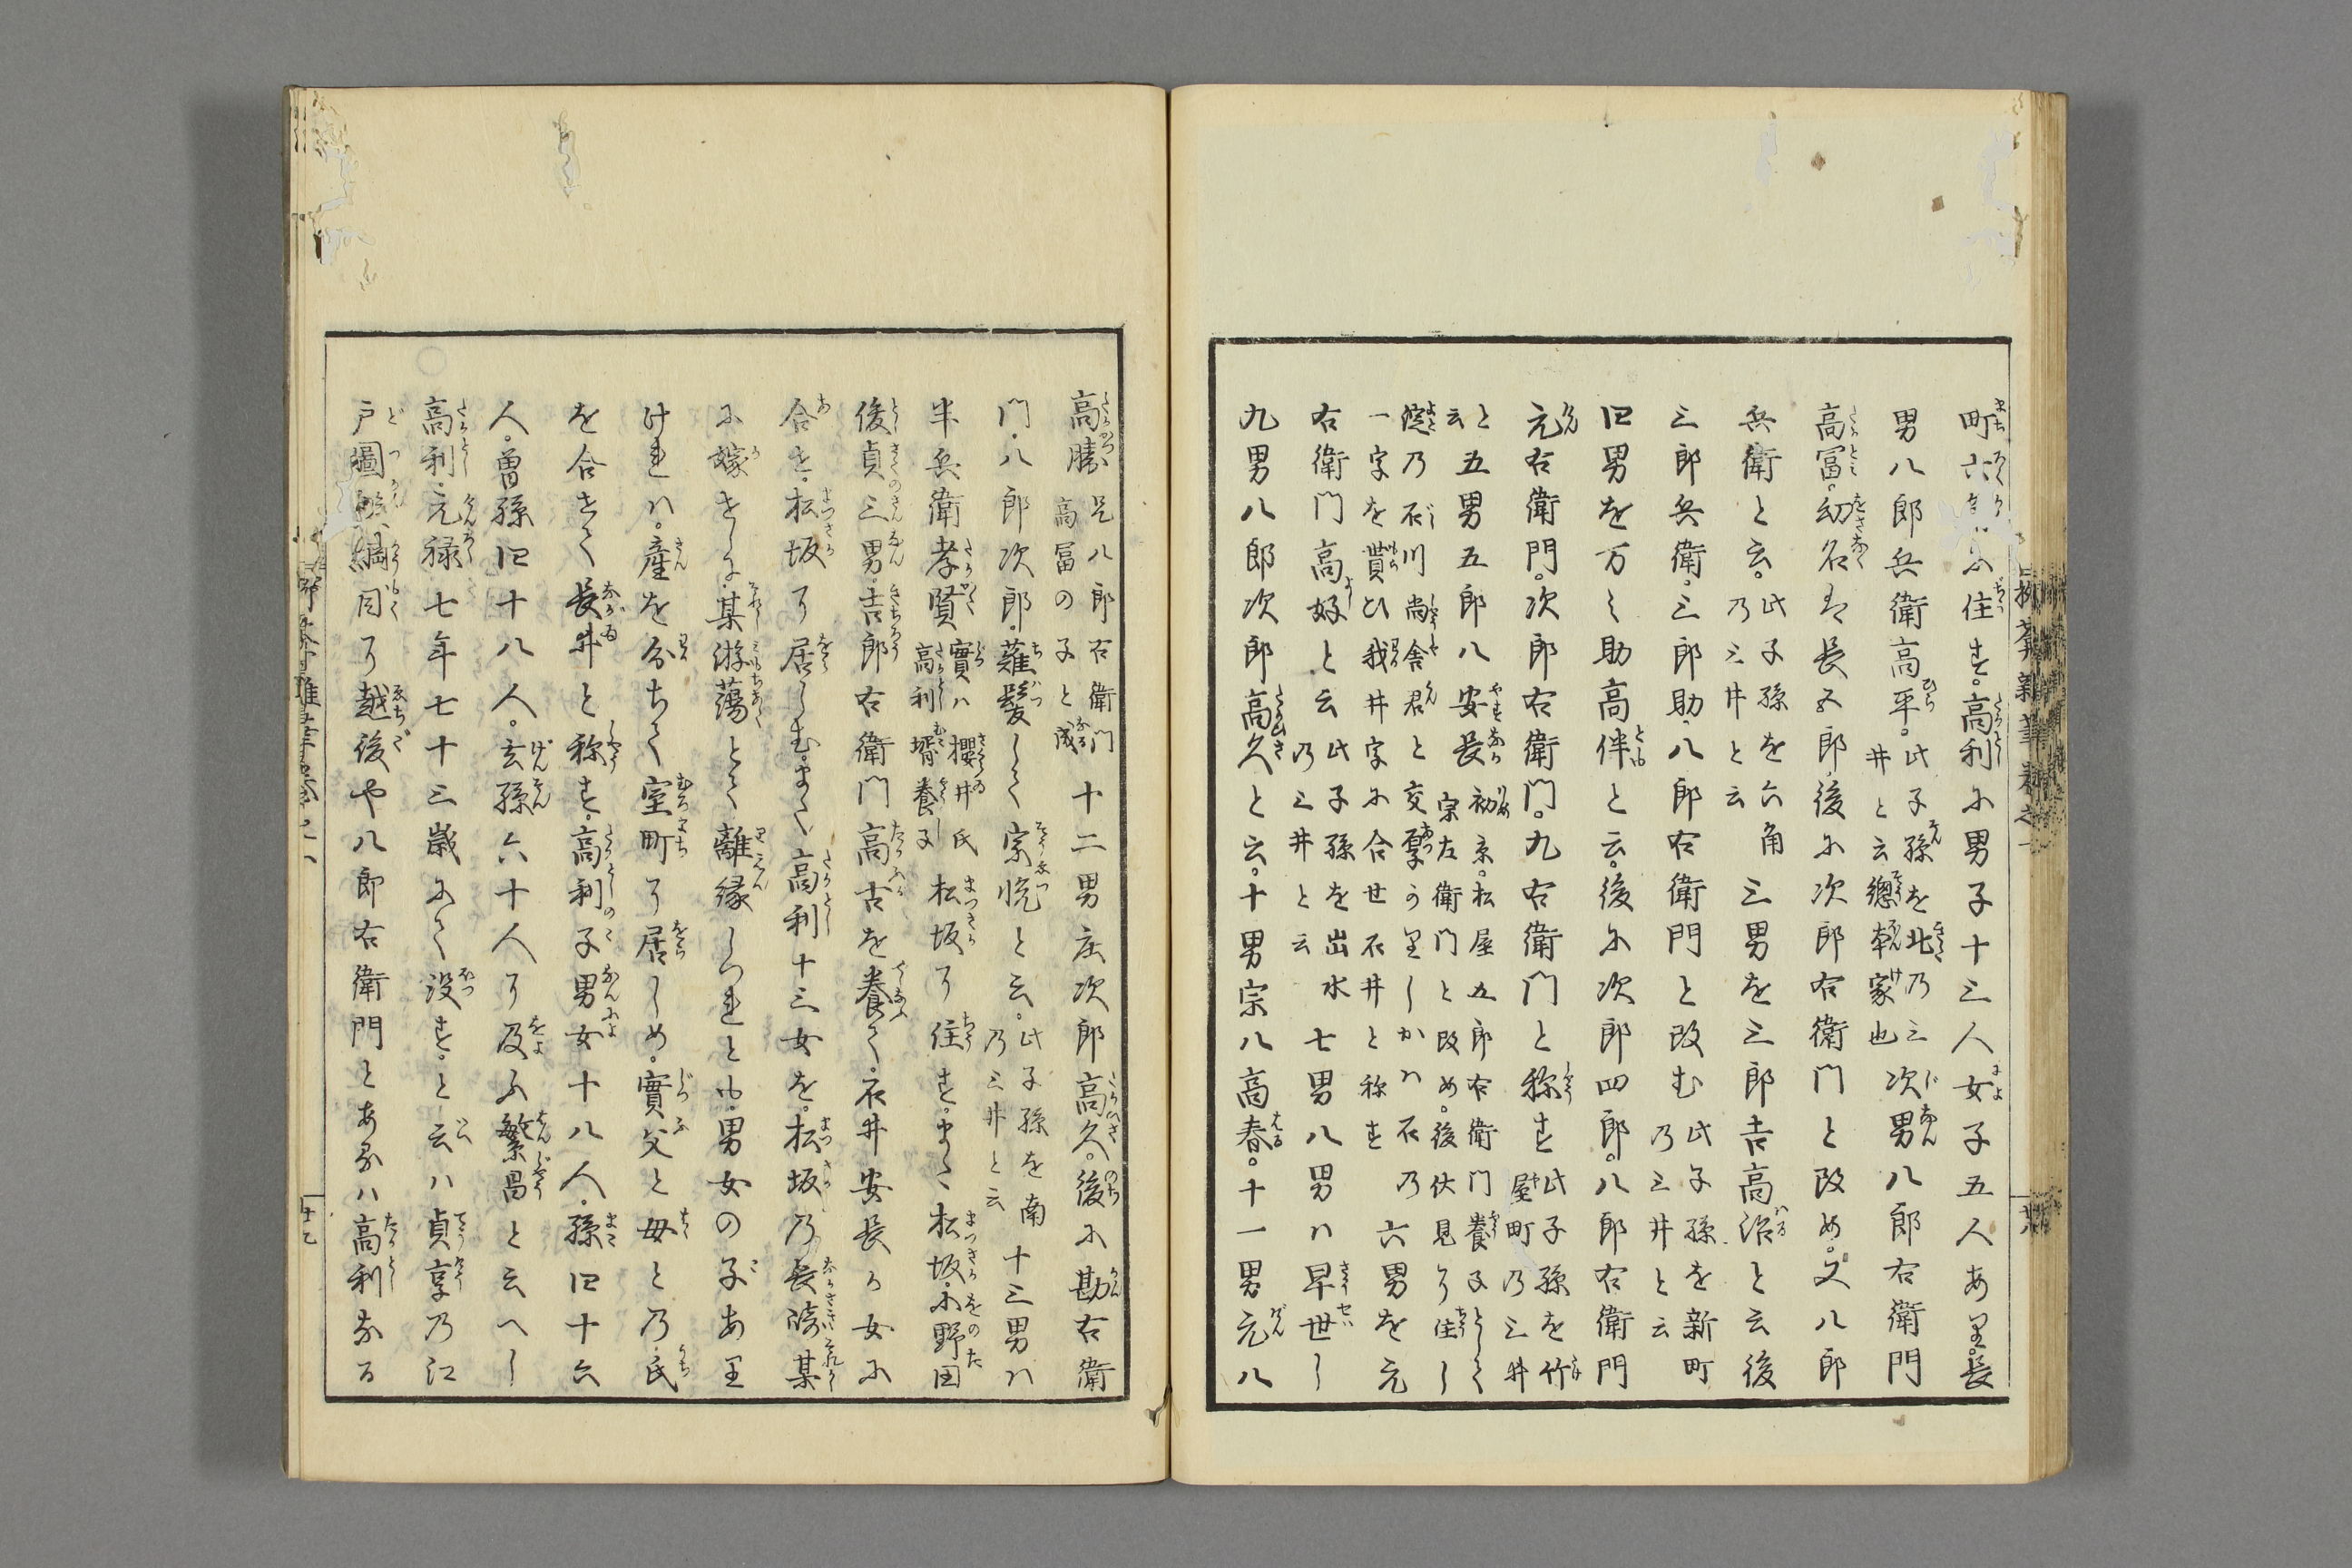 町六角ニ住す。高利に男子十三人女子五人あり。長
男八郎兵衛高平。此子孫を北乃三井と云總本家也次男八郎右衛門
高冨。幼名は長五郎後に次郎右衛門と改め。又八郎
兵衛と云。此子孫を六角乃三井と云三男を三郎吉高治と云後
三郎兵衛。三郎助。八郎右衛門と改む此子孫を新町乃三井と云
四男を万之助高伴と云。後に次郎四郎。八郎右衛門
元右衛門。次郎右衛門。九右衛門と称す此子孫を竹屋町乃三井
と云五男五郎八安長初京。松屋五郎右衛門養子として宗左衛門と改め。後伏見に住し
淀乃石川尚舎君と交厚うりしかハ石乃一字を貰ひ我井字に合世石井と称す六男を元
右衛門高好と云此子孫を出水乃三井と云七男八男ハ早世し
九男八郎次郎高久と云。十男宗八高春。十一男元八
高勝兄八郎右衛門高冨の子と成十二男庄次郎高久。後に勘右衛
門。八郎次郎。薙髪して宗悦と云。此子孫を南乃三井と云十三男ハ
半兵衛孝賢實ハ櫻井氏高利壻養子松坂に住す。また松坂。小野田
後貞三男。吉郎右衛門高古を養て。石井安長の女に
合せ。松坂に居しむ。また高利十三女を。松坂乃長崎某
に嫁せしに。某遊蕩とて離縁しつれとも。男女の子あり
けれハ。産を分ちて室町に居しめ。實父と母と乃氏
を合せて長井と称す。高利子男女十八人。孫四十六
人。曽孫四十八人。玄孫六十人に及ふ繁昌と云へし
高利。元禄七年七十三歳にて没す。と云ハ貞享乃江
戸圖鑑綱目に越後や八郎右衛門とあるハ高利なる